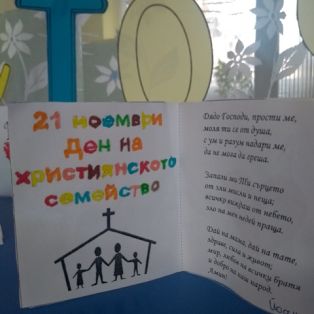 ТО
21 ноември
Ден на
християнското
семейство
Дядо Господи, прости ме,
моля ти се от душа,
с ум и разум надари ме,
да не мога да греша.
Запази ми Ти сърцето
от зли мисли и неща;
всичко виждаш от небето,
зло на мен недей праща.
Дай на мама, дай на тате,
здраве, сила и живот;
мир, любов на всички братя
и добро на наш народ.
Амин!